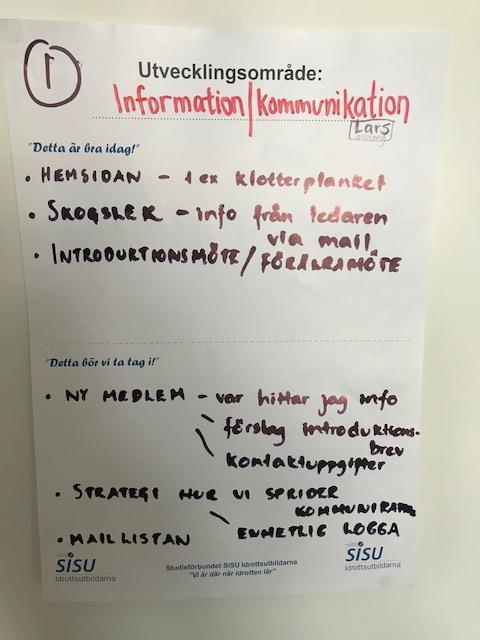 1
Utvecklingsområde:
Information/kommunikation
Lars
"Detta är bra idag!"
• HEMSIDAN - t ex klotterplanket
• SKOGSLEK - info från ledaren
via mail
• INTRODUKTIONSMÖTE/FÖRÄLRAMÖTE
"Detta bör vi ta tag i!"
• NY MEDLEM - var hittar jag info
förslag introduktions-
brev
kontaktuppgifter
• STRATEGI HUR VI SPRIDER
ENHETLIG LOGGA
• MAILLISTAN
SISU
Idrottsutbildarna
Studieförbundet SISU Idrottsutbildarna
"Vi är där när idrotten lär"
SISU
Idrottsutbildarna